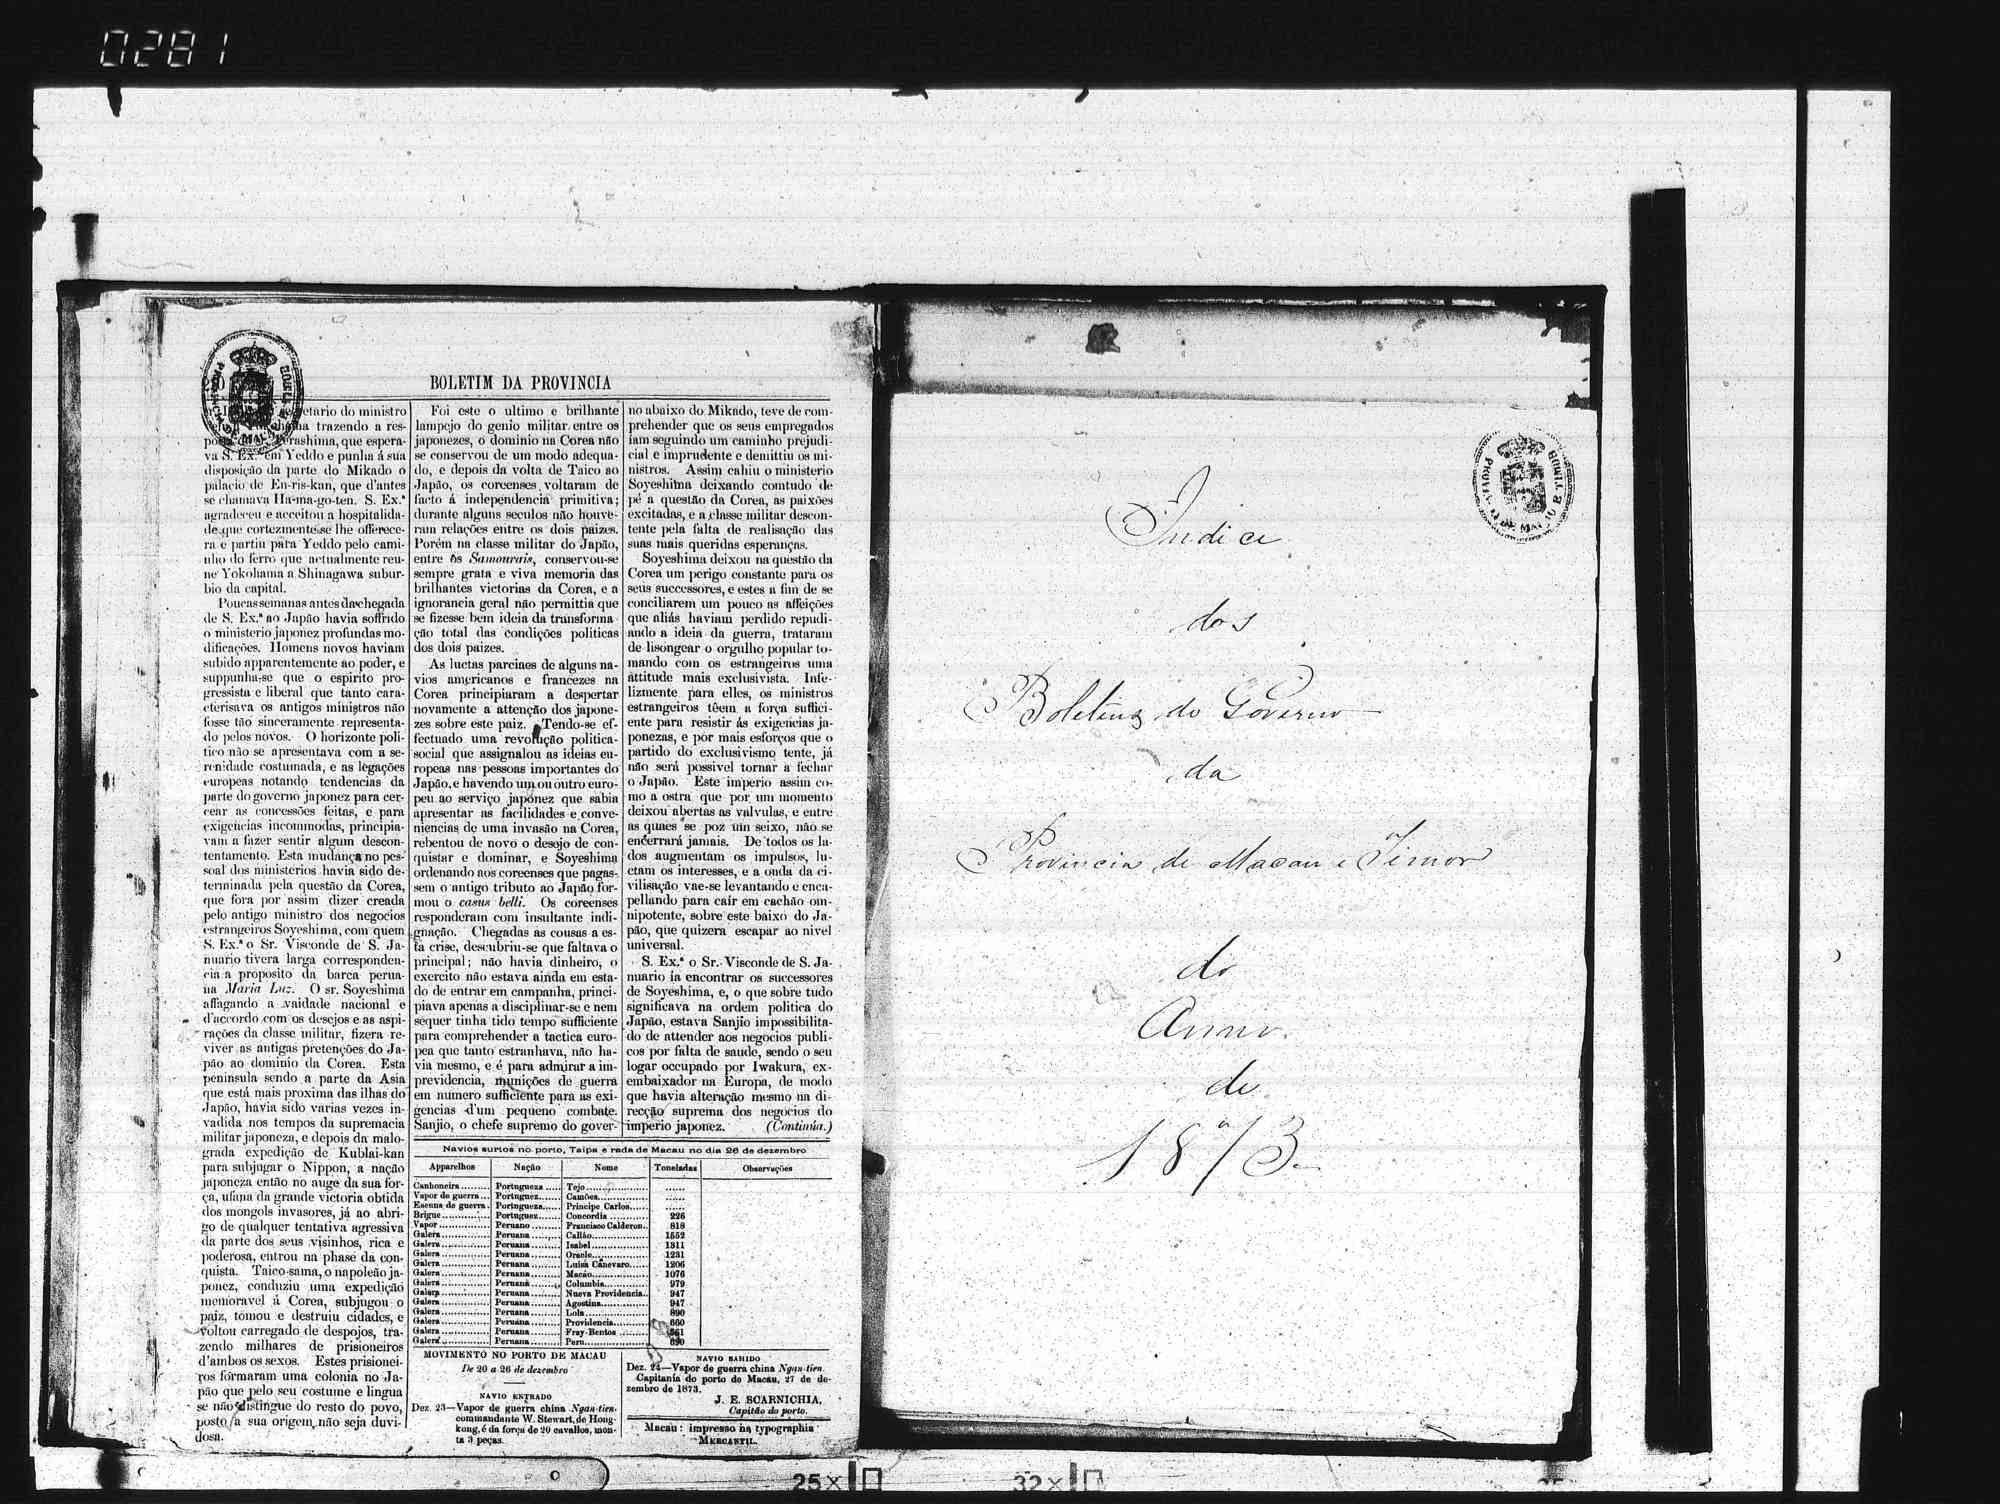 0281
BOLETIM DA PROVINCIA
etario do ministro
trazendo a res-
erashima, que espera-
va S. Ex.ª em Yeddo e punha á sua
disposição da parte do Mikado o
palacio de En-ris-kan, que d'antes
se chamava Ha-ma-go-ten. S. Ex.ª
agradeceu e acceitou a hospitalida-
de que cortezmente se lhe offerece-
ra e partiu para Yeddo pelo cami-
nho do ferro que actualmente reu-
ne Yokohama a Shinagawa subur-
bio da capital.
Poucas semanas antes da chegada
de S. Ex.ª ao Japão havia soffrido
o ministerio japonez profundas mo-
dificações. Homens novos haviam
subido apparentemente ao poder, e
suppunha-se que o espirito pro-
gressista e liberal que tanto cara-
cterisava os antigos ministros não
fosse tão sinceramente representa-
do pelos novos. O horizonte poli-
tico não se apresentava com a se-
renidade costumada, e as legações
europeas notando tendencias da
parte do governo japonez para cer-
cear as concessões feitas, e para
exigencias incommodas, principia-
vam a fazer sentir algum descon-
tentamento. Esta mudança no pes-
soal dos ministerios havia sido de-
terminada pela questão da Corea,
que fora por assim dizer creada
pelo antigo ministro dos negocios
estrangeiros Soyeshima, com quem
S. Ex.ª o Sr. Visconde de S. Ja-
nuario tivera larga corresponden-
cia a proposito da barca perua-
na Maria Luz. O sr. Soyeshima
affagando a vaidade nacional e
d'accordo com os desejos e as aspi-
rações da classe militar, fizera re-
viver as antigas pretenções do Ja-
pão ao dominio da Corea. Esta
peninsula sendo a parte da Asia
que está mais proxima das ilhas do
Japão, havia sido varias vezes in-
vadida nos tempos da supremacia
militar japoneza, e depois da malo-
grada expedição de Kublai-kan
para subjugar o Nippon, a nação
japoneza então no auge da sua for-
ça, ufana da grande victoria obtida
dos mongols invasores, já ao abri-
go de qualquer tentativa agressiva
da parte dos seus visinhos, rica e
poderosa, entrou na phase da con-
quista. Taico-sama, o napoleão ja-
ponez, conduziu uma expedição
memoravel á Corea, subjugou o
paiz, tomou e destruiu cidades, e
voltou carregado de despojos, tra-
zendo milhares de prisioneiros
d'ambos os sexos. Estes prisionei-
ros fórmaram uma colonia no Ja-
pão que pelo seu costume e lingua
se não distingue do resto do povo,
posto a sua origem não seja duvi-
dosa.
Foi este o ultimo e brilhante
lampejo do genio militar entre os
japonezes, o dominio na Corea não
se conservou de um modo adequa-
do, e depois da volta de Taico ao
Japão, os coreenses voltaram de
facto á independencia primitiva;
durante alguns seculos não houve-
ram relações entre os dois paizes.
Porém na classe militar do Japão,
entre os Samourais, conservou-se
sempre grata e viva memoria das
brilhantes victorias da Corea, e a
ignorancia geral não permittia que
se fizesse bem ideia da transforma
ção total das condições politicas
dos dois paizes.
As luctas parciaes de alguns na-
vios americanos e francezes na
Corea principiaram a despertar
novamente a attenção dos japone-
zes sobre este paiz. Tendo-se ef-
fectuado uma revolução politica-
social que assignalou as ideias eu-
ropeas nas pessoas importantes do
Japão, e havendo um ou outro euro-
peu ao serviço japonez que sabia
apresentar as facilidades e conve-
niencias de uma invasão na Corea,
rebentou de novo o desejo de con-
quistar e dominar, e Soyeshima
ordenando aos coreenses que pagas-
sem o antigo tributo ao Japão for-
mou o casus belli. Os coreenses
responderam com insultante indi-
gnação. Chegadas as cousas a es-
ta crise, descubriu-se que faltava o
principal; não havia dinheiro, o
exercito não estava ainda em esta-
do de entrar em campanha, princi-
piava apenas a disciplinar-se e nem
sequer tinha tido tempo sufficiente
para comprehender a tactica euro-
pea que tanto estranhava, não ha-
via mesmo, e é para admirar a im-
previdencia, munições de guerra
em numero sufficiente para as exi-
gencias d'um pequeno combate.
Sanjio, o chefe supremo do gover-
no abaixo do Mikado, teve de com-
prehender que os seus empregados
iam seguindo um caminho prejudi-
cial e imprudente e demittiu os mi-
nistros. Assim cahiu o ministerio
Soyeshima deixando comtudo de
pé a questão da Corea, as paixões
excitadas, e a classe militar descon-
tente pela falta de realisação das
suas mais queridas esperanças.
Soyeshima deixou na questão da
Corea um perigo constante para os
seus successores, e estes a fim de se
conciliarem um pouco as affeições
que aliás haviam perdido repudi-
ando a ideia da guerra, trataram
de lisongear o orgulho popular to-
mando com os estrangeiros uma
attitude mais exclusivista. Infe-
lizmente para elles, os ministros
estrangeiros têem a força suffici-
ente para resistir ás exigencias ja-
ponezas, e por mais esforços que o
partido do exclusivismo tente, já
não será possivel tornar a fechar
o Japão. Este imperio assim co-
mo a ostra que por um momento
deixou abertas as valvulas, e entre
as quaes se poz um seixo, não se
encerrará jamais. De todos os la-
dos augmentam os impulsos, lu-
ctam os interesses, e a onda da ci-
vilisação vae-se levantando e enca-
pellando para caír em cachão om-
nipotente, sobre este baixo do Ja-
pão, que quizera escapar ao nivel
universal.
S. Ex.ª o Sr. Visconde de S. Ja-
nuario ía encontrar os successores
de Soyeshima, e, o que sobre tudo
significava na ordem politica do
Japão, estava Sanjio impossibilita-
do de attender aos negocios publi-
cos por falta de saude, sendo o seu
logar occupado por Iwakura, ex-
embaixador na Europa, de modo
que havia alteração mesmo na di-
recção suprema dos negocios do
imperio japonez. (Continúa.)
Navios surtos no porto, Taipa e rada de Macau no dia 26 de dezembro
Apparelhos Nação Nome Toneladas Observações
Canhoneira Portugueza Tejo
Vapor de guerra Portuguez Camões
Escuna de guerra Portugueza Principe Carlos
Brigue Portuguez Concordia 226
Vapor Peruano Francisco Calderon 818
Galera Peruana Callão 1552
Galera Peruana Isabel 1311
Galera Peruana Oracle 1231
Galera Peruana Luisa Canevaro 1206
Galera Peruana Macáo 1076
Galera Peruana Columbia 979
Galera Peruana Nueva Providencia 947
Galera Peruana Agostina 947
Galera Peruana Lola 890
Galera Peruana Providencia 660
Galera Peruana Fray-Bentos
Galera Peruana Peru
MOVIMENTO NO PORTO DE MACAU
De 20 a 26 de dezembro
NAVIO ENTRADO
Dez. 23—Vapor de guerra china Ngan-tien,
commandante W. Stewart, de Hong-
kong, é da força de 20 cavallos, mon-
ta 3 peças.
NAVIO SAHIDO
Dez. 24—Vapor de guerra china Ngan-tien.
Capitania do porto de Macau, 27 de de-
zembro de 1873.
J. E. SCARNICHIA,
Capitão do porto.
Macau: impresso na typographia
MERCANTIL.
Indice
dos
Boletins do Governo
da
Provincia de Macau e Timor
do
Anno
de
1873
PROVINCIA DE MACAO E TIMOR
25X
32X